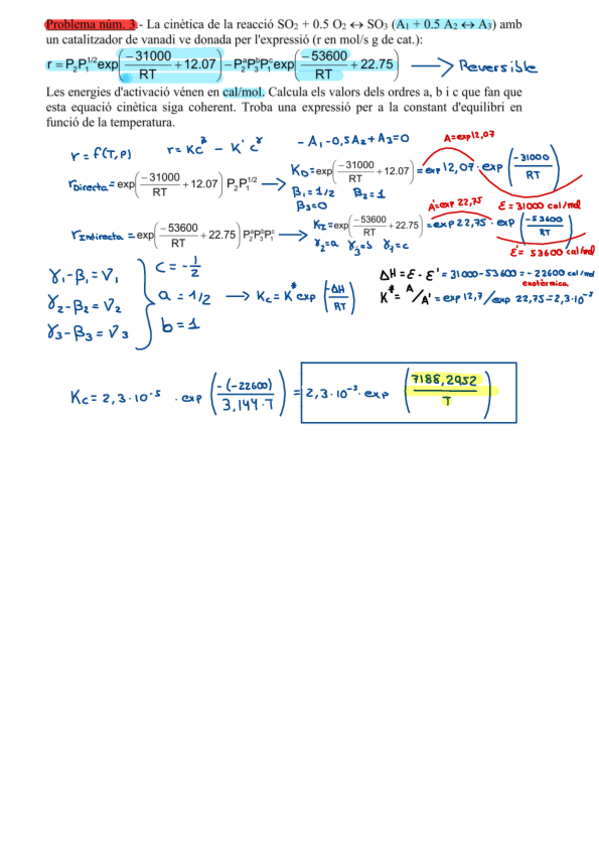 Problema núm. 3.- La cinètica de la reacció SO₂ + 0.5 O₂ ↔ SO₃ (A₁ + 0.5 A₂ ↔ A₃) amb
un catalitzador de vanadi ve donada per l'expressió (r en mol/s g de cat.):
r = P₂P₁^1/2 exp(−31000/RT + 12.07) − P₂^a P₃^b P₁^c exp(−53600/RT + 22.75) → Reversible
Les energies d'activació vénen en cal/mol. Calcula els valors dels ordres a, b i c que fan que
esta equació cinètica siga coherent. Troba una expressió per a la constant d'equilibri en
funció de la temperatura.
r = f(T,P) r = Kc^ − K' c^γ − A₁ − 0,5A₂ + A₃ = 0 A = exp 12,07
r Directa = exp(−31000/RT + 12.07) P₂P₁^1/2 → K_D = exp(−31000/RT + 12.07) = exp 12,07 · exp(−31000/RT)
β₁ = 1/2 β₂ = 1
β₃ = 0
A' = exp 22,75 E = 31000 cal/mol
r Indirecta = exp(−53600/RT + 22.75) P₂^a P₃^b P₁^c → K_I = exp(−53600/RT + 22.75) = exp 22,75 · exp(−53600/RT)
γ₂ = a γ₃ = b γ₁ = c E' = 53600 cal/mol
γ₁ − β₁ = ν₁
γ₂ − β₂ = ν₂
γ₃ − β₃ = ν₃
c = −1/2
a = 1/2
b = 1
→ Kc = K* exp(−ΔH/RT)
ΔH = E − E' = 31000 − 53600 = −22600 cal/mol
exotèrmica
K* = A/A' = exp 12,7 / exp 22,75 = 2,3·10⁻⁵
Kc = 2,3·10⁻⁵ · exp(−(−22600)/3,144·T) = 2,3·10⁻⁵ · exp(7188,2952/T)